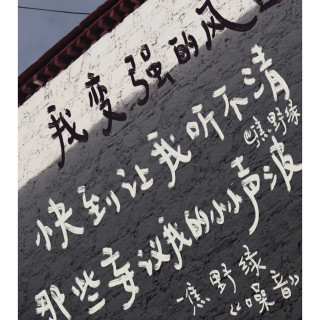 我变强的风
快到让我听不清
@焦野绿
那些妄议我的小小声波
-焦野绿
《噪音》